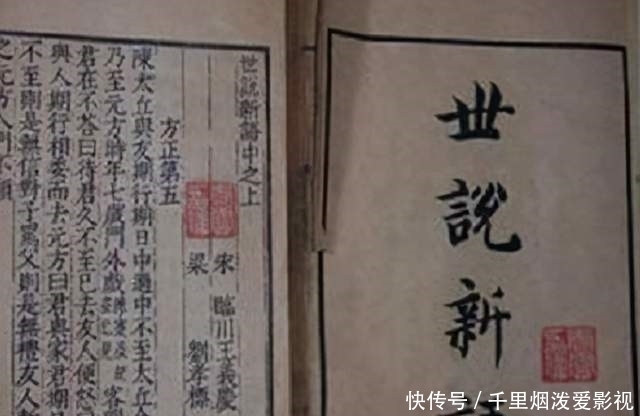 世說新
世說新語中之上
宋 臨川王義慶
梁 劉孝標
方正第五
陳太丘與友期行期日中過中不至太丘
乃至元方時年七歲門外戲 客
君在不答曰待君久不至已去友人便怒
與人期行相委而去元方曰君與家君期
不至則是無信對子罵父則是無禮友人
之元方入門不顧
快传号／千里烟泼爱影视